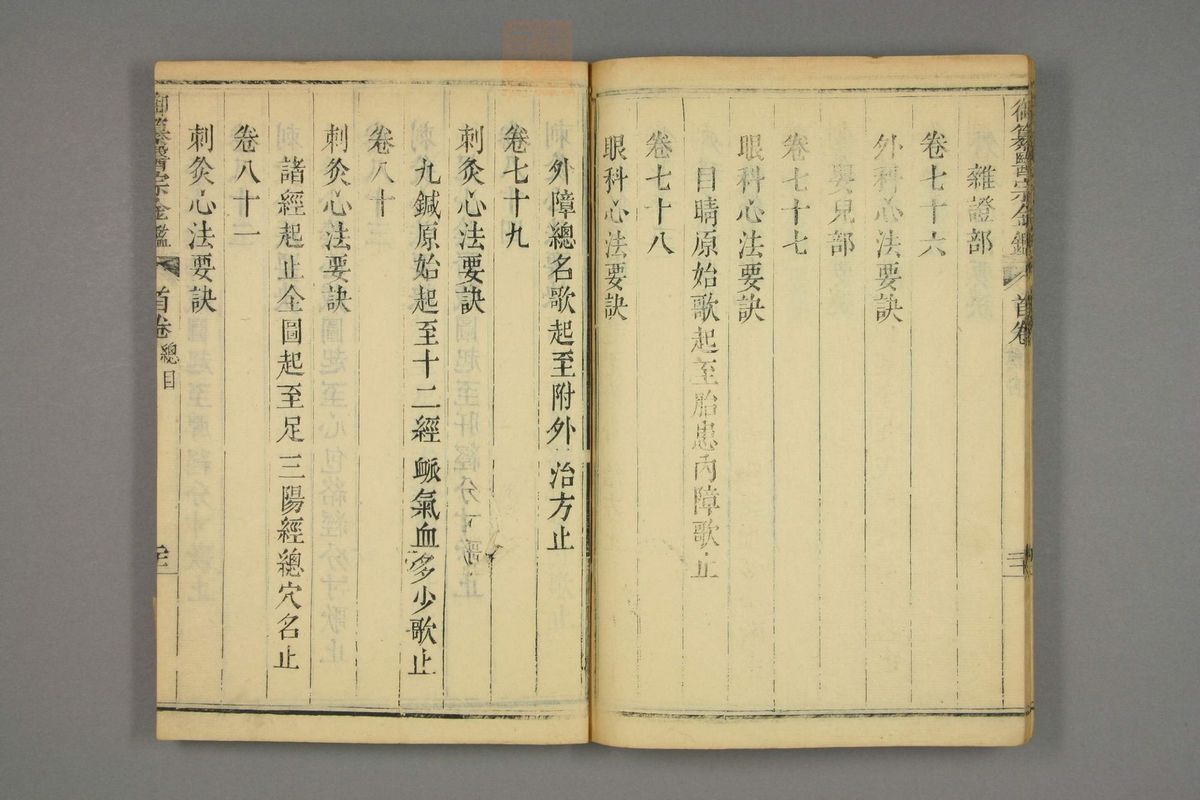 御纂醫宗金鑑 首卷
雜證部
卷七十六
外科心法要訣
嬰兒部
卷七十七
眼科心法要訣
目睛原始歌起至胎患內障歌止
卷七十八
眼科心法要訣
外障總名歌起至附外治方止
卷七十九
刺灸心法要訣
九鍼原始起至十二經脈氣血多少歌止
卷八十
刺灸心法要訣
諸經起止全圖起至足三陽經總穴名止
卷八十一
刺灸心法要訣
御纂醫宗金鑑 首卷 總目